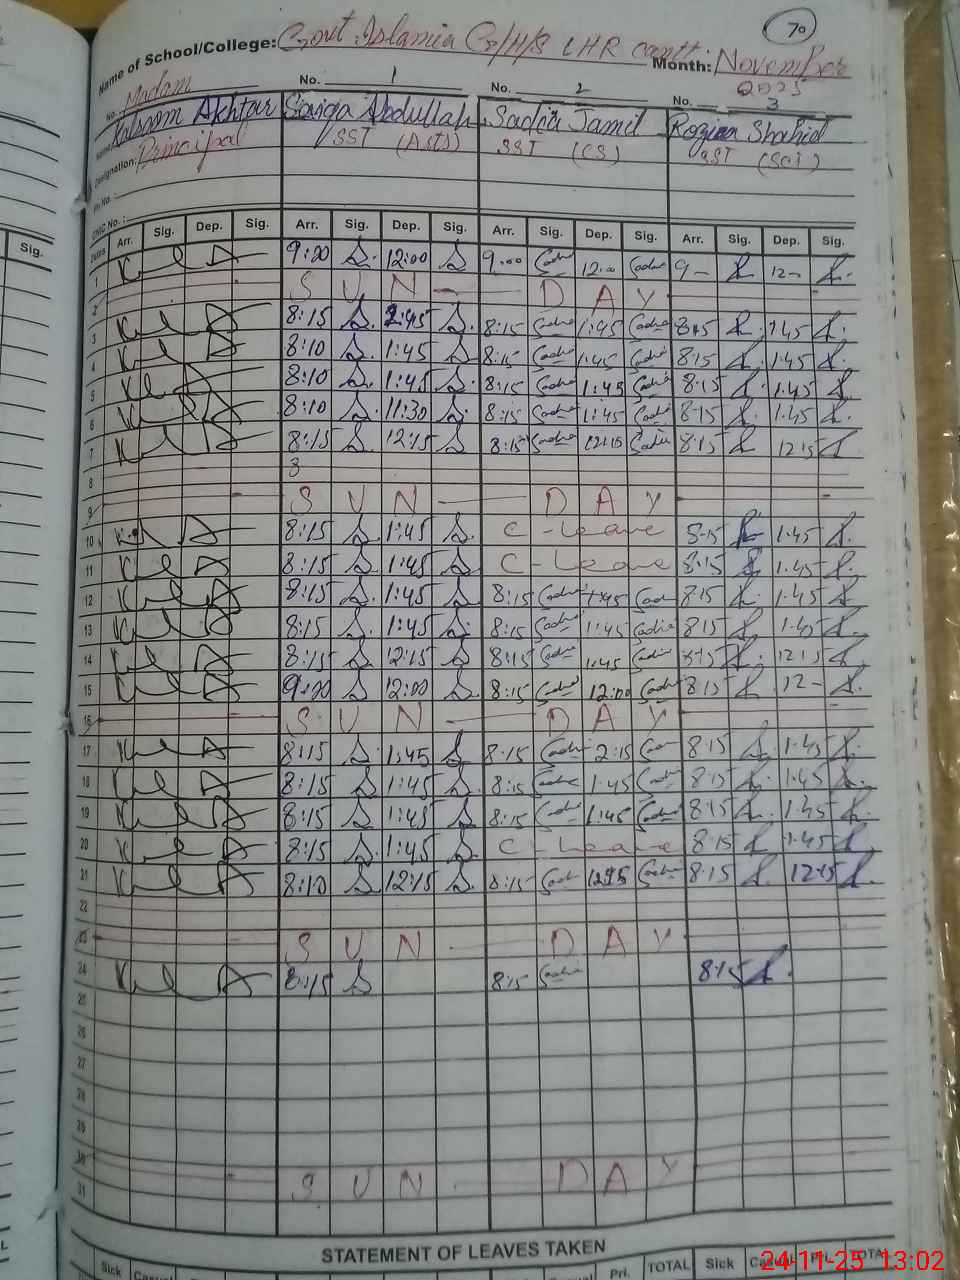 70
Name of School/College: Govt. Islamia G/H/S LHR cantt. Month: November 2025
No. Madam No. 1 No. 2 No. 3
Name Kalsoom Akhtar Saiqa Abdullah Sadia Jamil Rozina Shahid
Designation: Principal SST (Arts) SST (CS) SST (Sci)
P. No. :
CNIC No. :
Dates Arr. Sig. Dep. Sig. Arr. Sig. Dep. Sig. Arr. Sig. Dep. Sig. Arr. Sig. Dep. Sig.
1 9:00 12:00 9.00 Sadia 12.00 Sadia 9- 12-
2 S U N - D A Y
3 8:15 1:45 8:15 Sadia 1:45 Sadia 8:15 1.45
4 8:10 1:45 8:15 Sadia 1:45 Sadia 8:15 1.45
5 8:10 1:45 8:15 Sadia 1:45 Sadia 8:15 1.45
6 8:10 11:30 8:15 Sadia 1:45 Sadia 8:15 1.45
7 8:15 12:15 8:15 Sadia 12:15 Sadia 8:15 12:15
8 3
9 S U N - D A Y
10 8:15 1:45 C - Leave 8:15 1.45
11 8:15 1:45 C - Leave 8:15 1.45
12 8:15 1:45 8:15 Sadia 1:45 Sadia 8:15 1.45
13 8:15 1:45 8:15 Sadia 1:45 Sadia 8:15 1.45
14 8:15 12:15 8:15 Sadia 1:45 Sadia 8:15 12:15
15 9:00 12:00 8:15 Sadia 12:00 Sadia 8:15 12-
16 S U N - D A Y
17 8:15 1:45 8:15 Sadia 2:15 8:15 1.45
18 8:15 1:45 8:15 Sadia 1:45 Sadia 8:15 1.45
19 8:15 1:45 8:15 Sadia 1:45 Sadia 8:15 1.45
20 8:15 1:45 C - Leave 8:15 1.45
21 8:10 12:15 8:15 Sadia Sadia 8:15 12:15
22
23 S U N - D A Y
24 8:15 8:15 Sadia 8:15
25
26
27
28
29
30 S U N - D A Y
31
STATEMENT OF LEAVES TAKEN
Sick Casual Pri. TOTAL Sick Casual Pri. TOTAL
Sig.
24-11-25 13:02